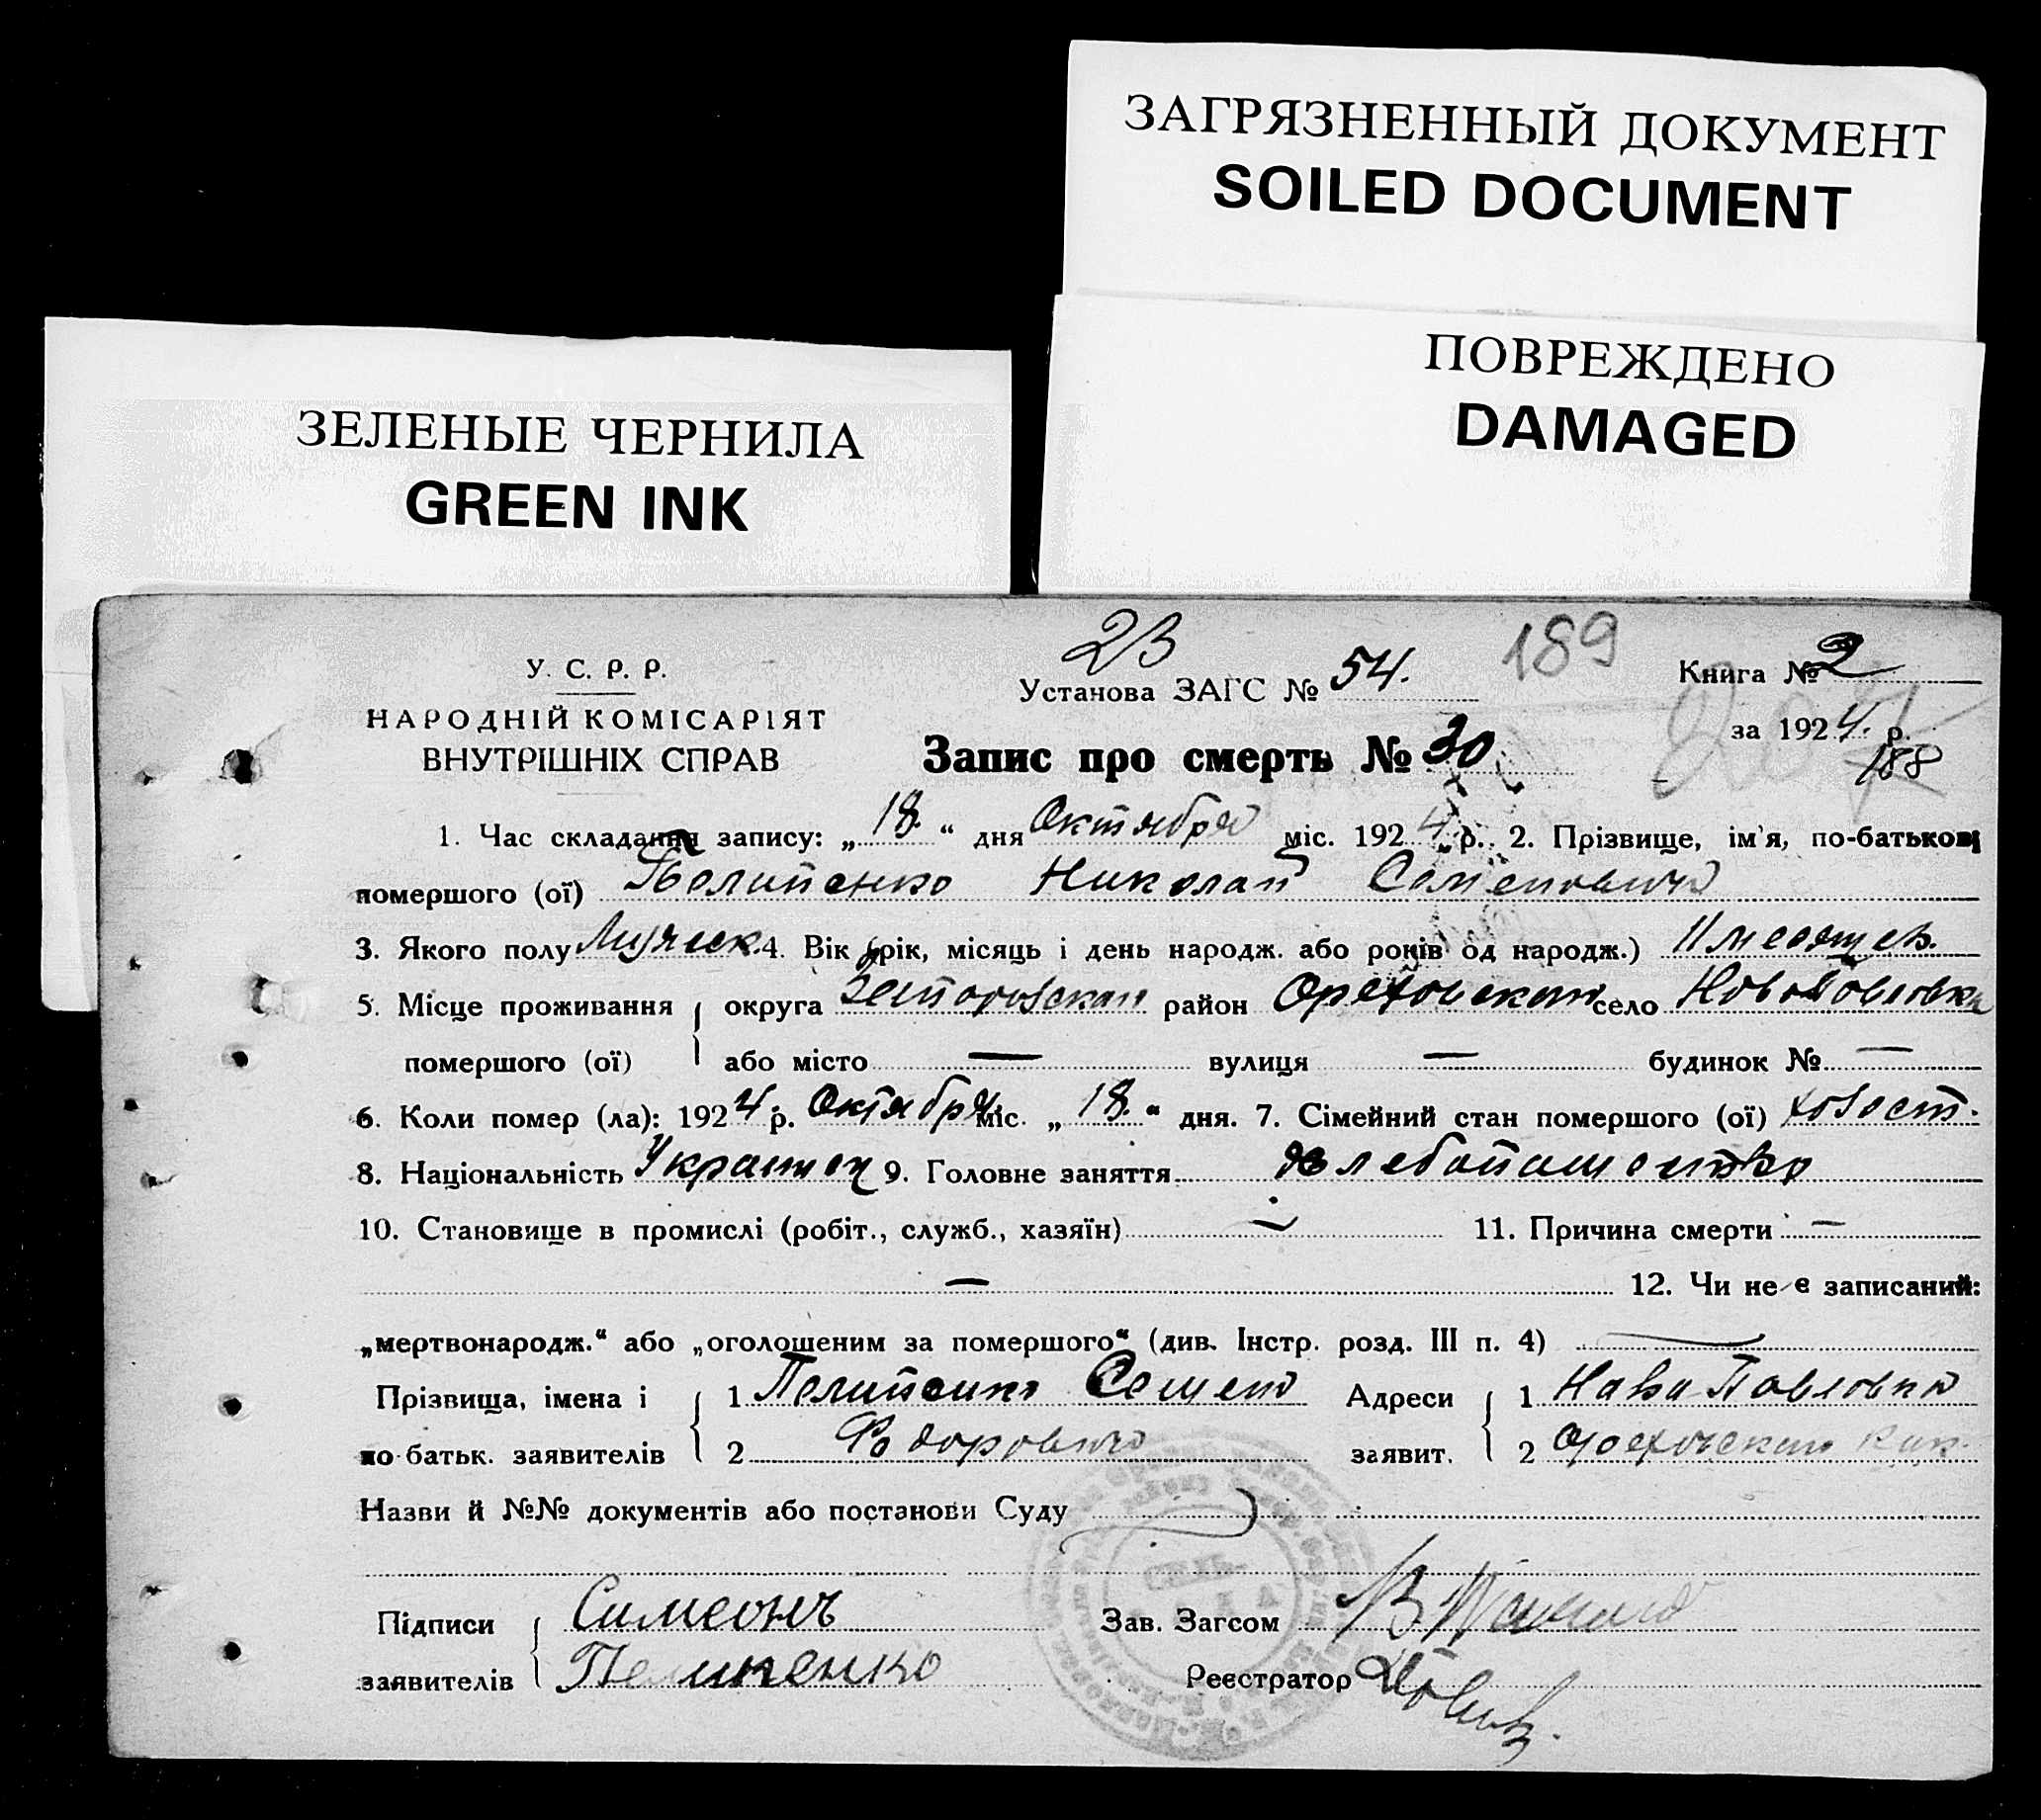 ЗАГРЯЗНЕННЫЙ ДОКУМЕНТ
SOILED DOCUMENT
ПОВРЕЖДЕНО
DAMAGED
ЗЕЛЕНЫЕ ЧЕРНИЛА
GREEN INK
23
189
У. С. Р. Р.
Установа ЗАГС № 54.
Книга № 2
НАРОДНІЙ КОМІСАРІЯТ
за 1924. р.
ВНУТРІШНІХ СПРАВ
Запис про смерть № 30
188
1. Час складання запису: „18.“ дня Октября міс. 1924 р. 2. Прізвище, ім'я, по-батькові
помершого (ої) Пелипенко Николай Семенович
3. Якого полу Мужеск. 4. Вік (рік, місяць і день народж. або років од народж.) 11 месяцев.
5. Місце проживання округа район Ореховский село НовоПавловка
помершого (ої) або місто — вулиця — будинок № —
6. Коли помер (ла): 1924 р. Октября міс. „18.“ дня. 7. Сімейний стан помершого (ої) холост.
8. Національність Украинец 9. Головне заняття хлебопашество
10. Становище в промислі (робіт., служб., хазяїн) — 11. Причина смерти —
— 12. Чи не є записаний:
„мертвонародж.“ або „оголошеним за помершого“ (див. Інстр. розд. III п. 4) —
Прізвища, імена і 1 Пелипенко Семен Адреси 1 Нова Павловка
по батьк. заявителів 2 Федорович заявит. 2 Ореховский
Назви й №№ документів або постанови Суду
Підписи Симеонъ Зав. Загсом
заявителів Пелипенко Реєстратор